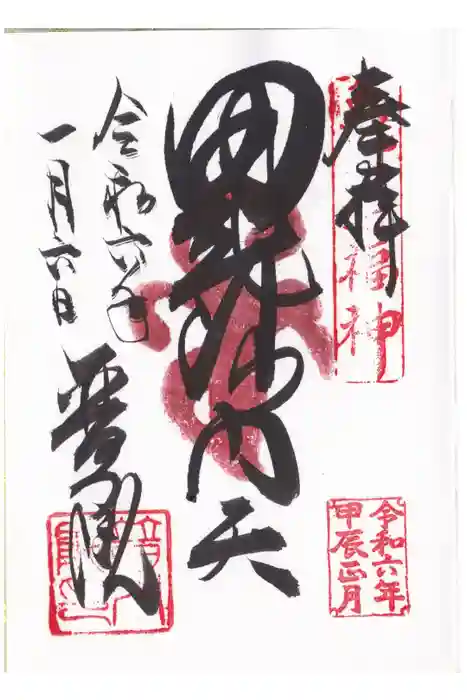 奉拝
福神
毘沙門天
令和六年
一月六日
令和六年
甲辰正月